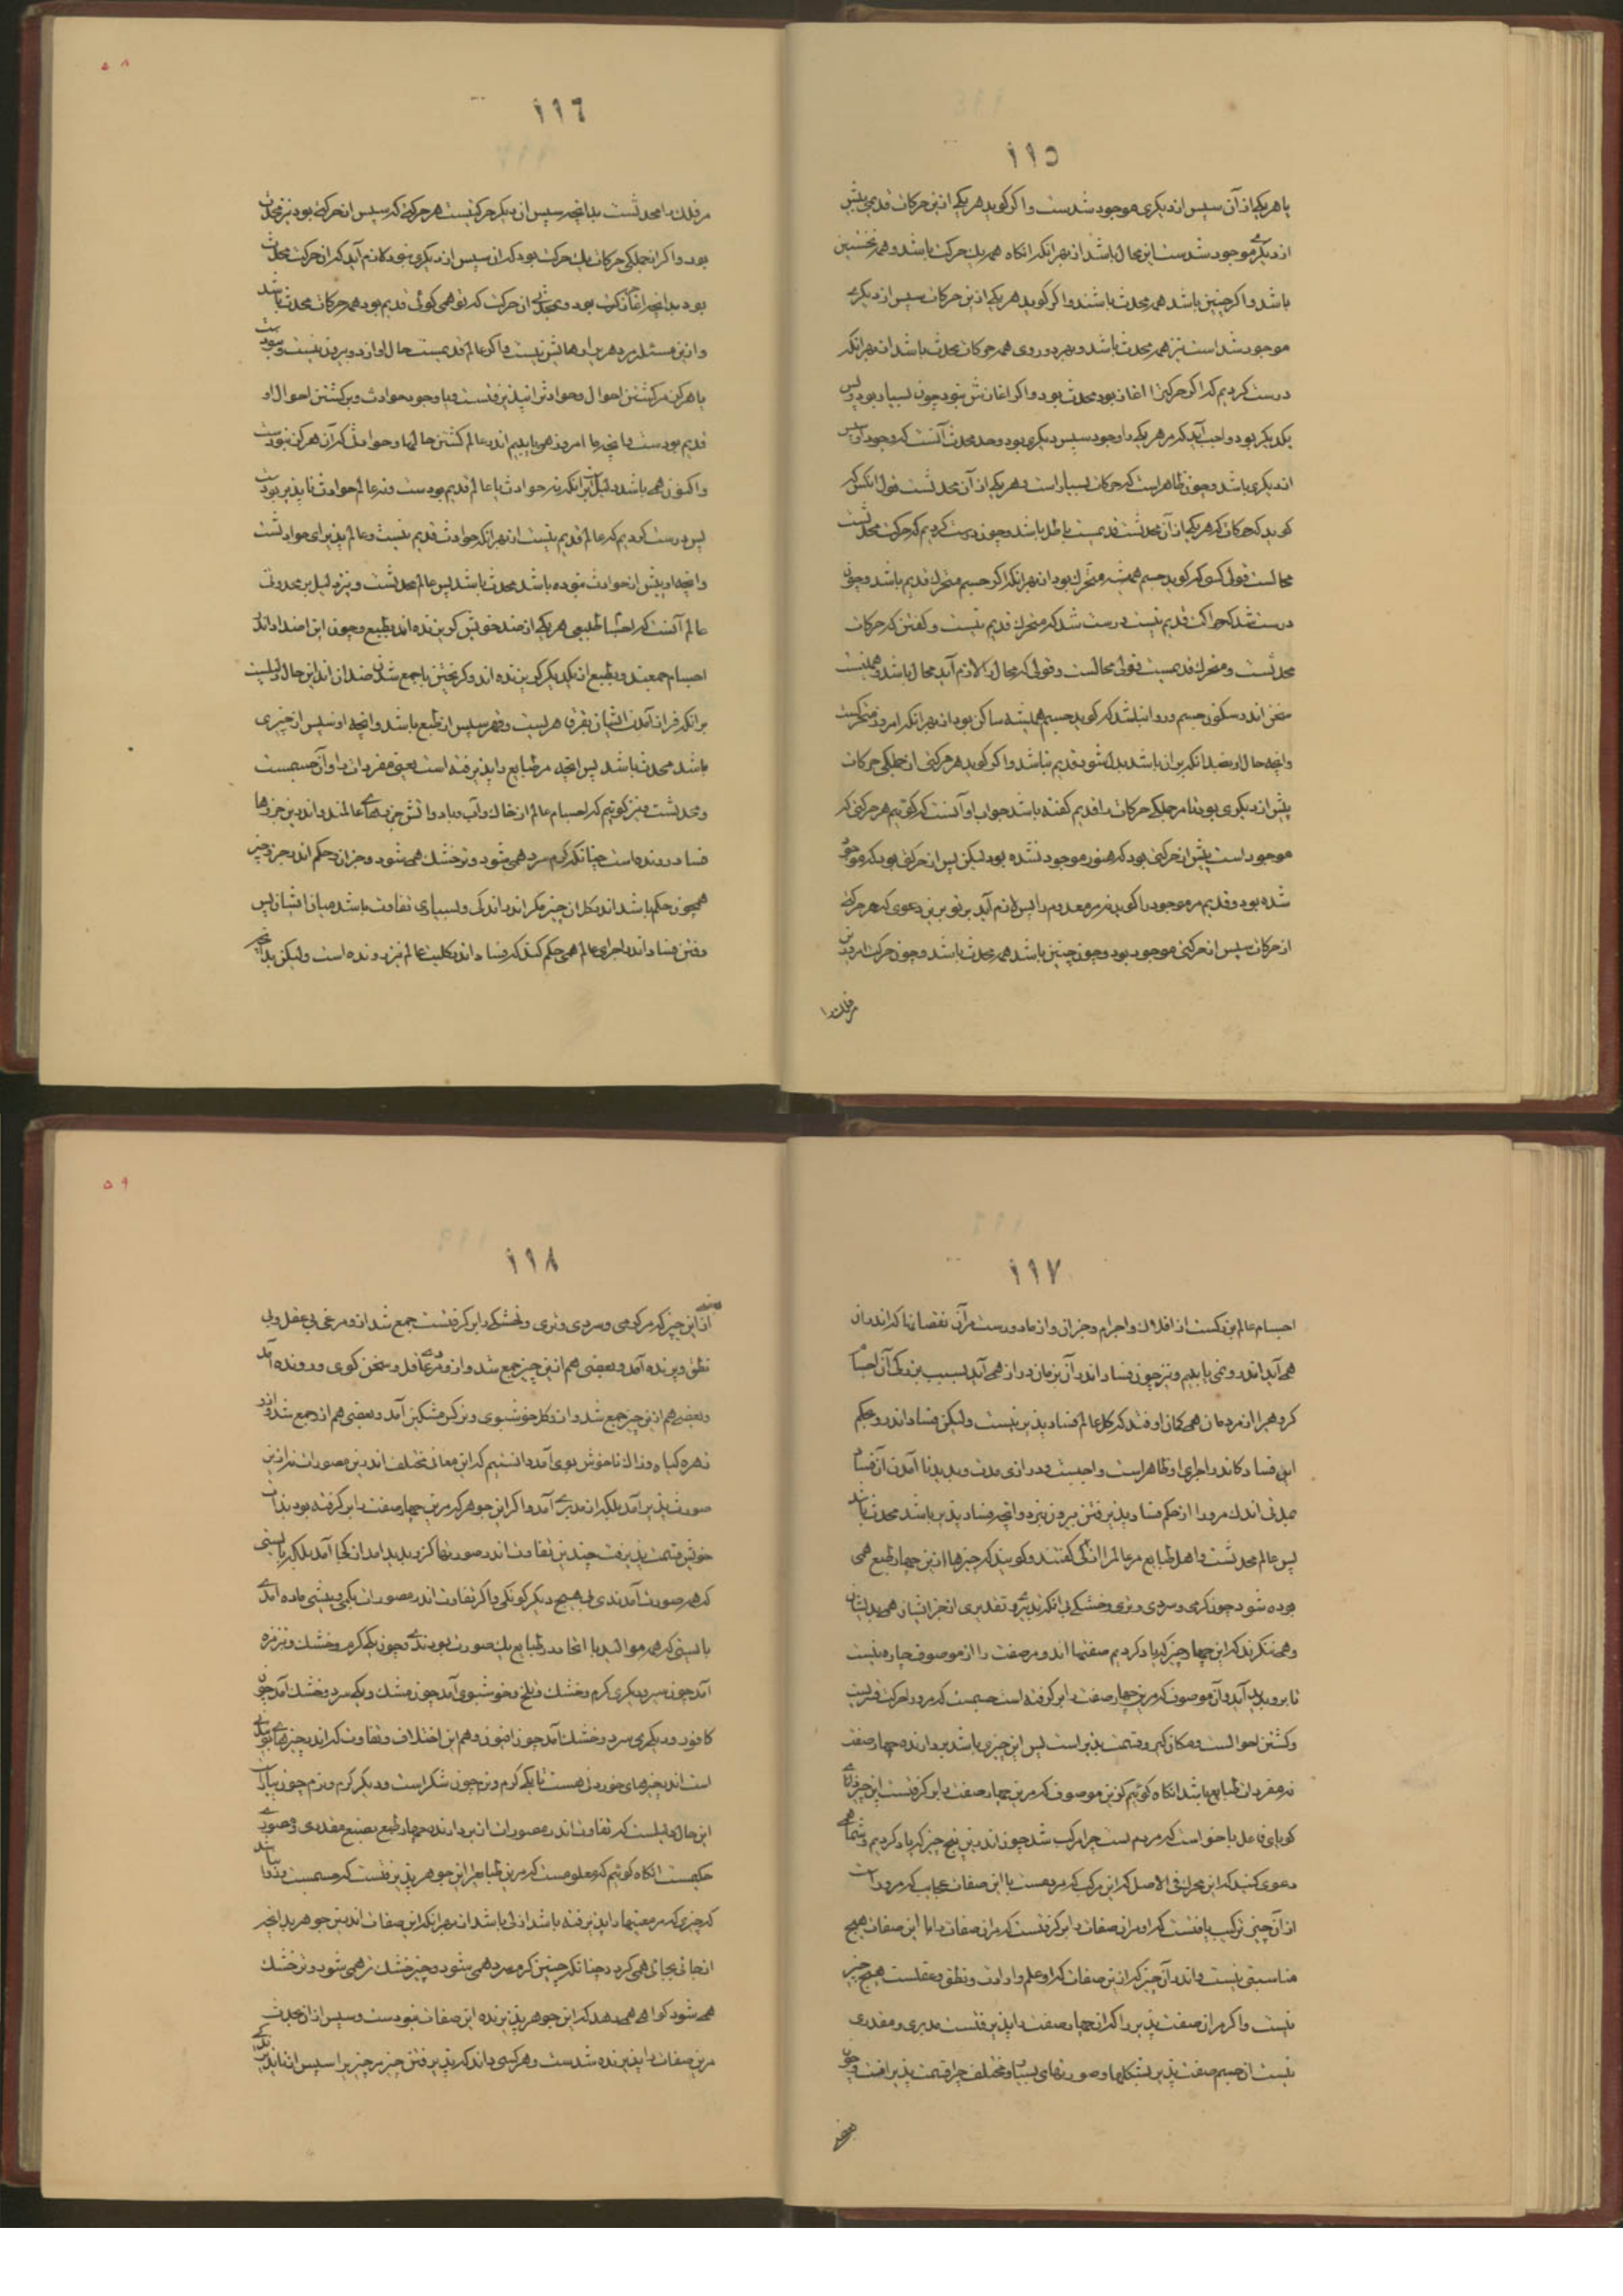 ١١٥
یا هر یکی از آن سپس از دیگری موجود شدست واکر کوید هر یکی ازین حرکات قدیمی پیش
از دیگری موجود شدست این محال باشد از بهر انکه انکاه همه یك حرکت باشد و همه نخستین
باشد واکر چنین باشد همه محدث باشند واکر کوید هر یکی ازین حرکات سپس از دیکری
موجود شد است نیز همه محدث باشد و بهر دو روی همه حرکات محدث باشد از بهر انکه
درست کردیم که اکر حرکت را اغاز بود محدث بود واکر اغازش نبود چون بسیار بود و پس
یکدیکر بود واجب آید که مر هر یکی را وجود سپس دیکری بود وحد محدث آنست که وجود او سپس
از دیکری باشد وچون ظاهر است که حرکات بسیار است و هر یکی از آن محدثست قول انکس که
کوید که حرکات که هر یکی از آن محدثست قدیمست باطل باشد وچون درست کردیم که حرکت محدثست
محالست قول کسی که کوید جسم همیشه متحرك بود از بهر انکه اکر جسم متحرك قدیم باشد وچون
درست شد که حرکت قدیم نیست درست شد که متحرك قدیم نیست و کفتن که حرکات
محدثست و متحرك قدیمست قولی محالست وقولی که محال را لازم آید محال باشد و همینست
سخن اندر سکون جسم و روا نباشد که کوید جسم همیشه ساکن بود از بهر انکه امروز متحرکست
وانچه حال او بضد انکه بر ان باشد بدل شود قدیم نباشد واکر کوید هر حرکتی از جملکی حرکات
پیش از دیکری بود تا مر جملکی حرکات را قدیم کفته باشد جواب او آنست که کوئیم هر حرکتی که
موجود است پیش از حرکتی بود که هنوز موجود نشده بود لیکن پس از حرکتی بود که موجود
شده بود و قدیم مر موجود را کویند نه مر معدوم را پس لازم آید بر تو برین دعوی که هر حرکتی
از حرکات سپس از حرکتی موجود بود وچون چنین باشد همه محدث باشد وچون حرکت امروزین
مر فلك را
١١٦
مر فلك را محدثست بدانچه سپس از دیکر حرکتیست هر حرکتی که سپس از حرکتی بود نیز محدث
بود واکر از جملکی حرکات یك حرکت بود که ان سپس از دیکری نبود لازم آید که ان حرکت محدث
بود بدانچه اغاز حرکت بود و بمحدثی ان حرکت که تو همی کوئی قدیم بود همه حرکات محدث باشد
وازین مسئله مر دهری را رهایش نیست واکر عالم قدیمست حال او از دو بیرون نیست
یا هرکز مر کشتن احوال وحوادث را نپذیرفتست ویا وجود حوادث وبر کشتن احوال او
قدیم بودست وانچه ما امروز همی یابیم اندر عالم کشتن حالها وحوادث که آن هرکز نبودست
واکنون همی باشد دلیلست بر انکه نه حوادث با عالم قدیم بودست ونه عالم حوادث ناپذیر بودست
پس درست کردیم که عالم قدیم نیست از بهر انکه حوادث قدیم نیست وعالم پذیرای حوادثست
وانچه او پیش از حوادث نبوده باشد محدث باشد پس عالم محدثست و نیز دلیل بر محدوثی
عالم آنست که اجسام طبیعی هر یکی از ضد خویش کریزنده اند بطبع وچون این اضداد اندر
اجسام جمعند و بطبع از یکدیکر کریزنده اند وکریختن با جمع شدن ضدان اند این حال دلیلست
بر انکه فراز آمدن ایشان بقهر قاهریست وقهر سپس از طبع باشد وانچه او سپس از چیزی
باشد محدث باشد پس انچه مر طبایع را پذیرفته است یعنی مفردات را و آن جسمست
ومحدثست و نیز کوئیم که اجسام عالم از خاك وآب وباد واتش جزوهای عالمند واندرین جزوها
فساد رونده است چنانکه کرم سرد همی شود و تر خشك همی شود وجز ان وحکم اندر جزو چیز
همچون حکم باشد اندر کل ان چیز مکر اندر اندکی وبسیاری تفاوت باشد میان ایشان پس
رفتن فساد اندر اجزای عالم همی حکم کند که فساد اندر کلیت عالم نیز رونده است ولیکن بدانچه
١١٧
اجسام عالم بزرکست از افلاك و اجرام وجز ان واز ما دورست مر آن نقصانها که اندران
همی آید اندر و نمی یابیم و نیز چون فساد اندر آن بزمان دراز همی آید بسبب بزرکی آن اجسام
کروهی را از مردمان همی کمان اوفتد که کل عالم فساد پذیر نیست ولیکن فساد اندر و بحکم
این فساد که اندر اجزای او ظاهر است واجبست ودرازی مدت وپدید نا آمدن آن فساد
بمدتی اندك مرورا از حکم فساد پذیرفتن بیرون نبرد وانچه فساد پذیر باشد محدث باشد
پس عالم محدثست واهل طبایع مر عالم را ازلی کفتند وکویند که چیزها ازین چهار طبع همی
بوده شود چون کرمی وسردی و تری وخشکی بی انکه تدبیر و تقدیری از جز ایشان همی بدیشان
وهمی ننکرند که این چهار چیز که یاد کردیم صفتها اند و مر صفت را از موصوف چاره نیست
تا برو پدید آید و آن موصوف که مرین چهار صفت را بر کرفته است جسمست که مرورا حرکت قسریست
وکشتن احوالست ومکان کیر وقسمت پذیر است پس این چیزی باشد بردارنده چهار صفت
نه مفردات طبایع باشد انکاه کوئیم کزین موصوف که مرین چهار صفت را بر کرفتست این چیزهای
کویای فاعل باخواست که مردم است چرا مرکب شد چون اندرین پنج چیز که یاد کردیم و شما همی
دعوی کنید که این محرك فی الاصل که این مرکب که مردمست با این صفات عجایب که مروراست
از آن چیز ترکیب یافتست که او مران صفات را بر کرفتست که مران صفات را با این صفات هیچ
مناسبتی نیست واندر آن چیز که ازین صفات که او علم وارادت ونطق وعقلست هیچ چیز
نیست واکر مر ان صفت پذیر را که ان چهار صفت را پذیرفتست مدبری و مقدری
نیست ان جسم صفت پذیر بشکلها وصورتهای بسیار ومختلف چرا قسمت پذیر افت وچون
بعضی
١١٨
بعضی ازین چیز که مر کرمی وسردی وتری وخشکی را بر کرفتست جمع شد ازو مرغی بی عقل وبی
نطق وپرنده آمد وبعضی هم ازین چیز جمع شد وازو مردمی عاقل وسخن کوی ورونده آمد
وبعضی هم ازین چیز جمع شد وازو کل خوشبوی ونرکس مشکین آمد وبعضی هم ازو جمع شد وازو
زهره کیاه وزاك ناخوش بوی آمد دانستیم که این معانی مختلف اندرین مصورات نه ازین
صورت پذیر آمد بلکه از مدبری آمد واکر این جوهر که مرین چهار صفت را بر کرفته بود بذات
خویش قسمت پذیرفت چندین تفاوت اندر صورتها کزو پدید امد از کجا آمد بلکه بایستی
که همه صورت آمدندی بی هیچ دیکر کونکی واکر تفاوت اندر مصورات بکمی وبیشی ماده آمدی
بایستی که همه موالید با اتحاد طبایع یك صورت بودندی وچون یکی کرم وخشك وتیزمزه
آمد چون سیر و دیکری کرم وخشك وتلخ وخوشبوی آمد چون مشك ویکی سرد وخشك آمد چون
کافور ودیکری سرد وخشك آمد چون افیون وهم این اختلاف وتفاوت که اندر چیزهای بویایی
است اندر چیزهای خوردنی هست تا یکی کرم ونرم چون شکر است ودیکر کرم ونرم چون پیازست
این حال دلیلست که تفاوت اندر مصورات ازین دارنده چهار طبع بصنع مقدری ومصوری
حکیمست انکاه کوئیم که معلومست که مرین طبایع را این جوهر پذیرفتست که جسمست وروا نباشد
که چیزی که مر معنیها را پذیرفته باشد ازلی باشد از بهر انکه این صفات اندرین جوهر بدانچه
از حالی بحالی همی کردد چنانکه چیز کرم سرد همی شود وچیز خشك تر همی شود وتر خشك
همی شود کواهی همی دهد که این جوهر پذیرنده این صفات نبودست وسپس از ان محدث
مرین صفات را پذیرنده شدست وهر کسی داند که پذیرفتن چیز مر چیز را سپس از ناپذیرفتن